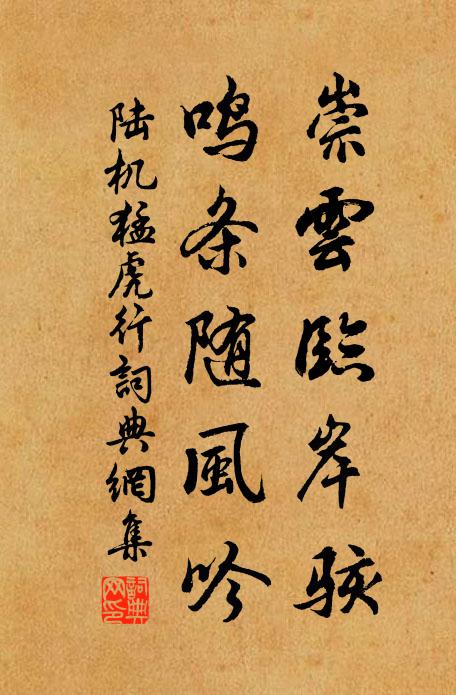 崇雲臨岸骇
鸣条随風吟
陆机猛虎行詞典網集
詞典网印